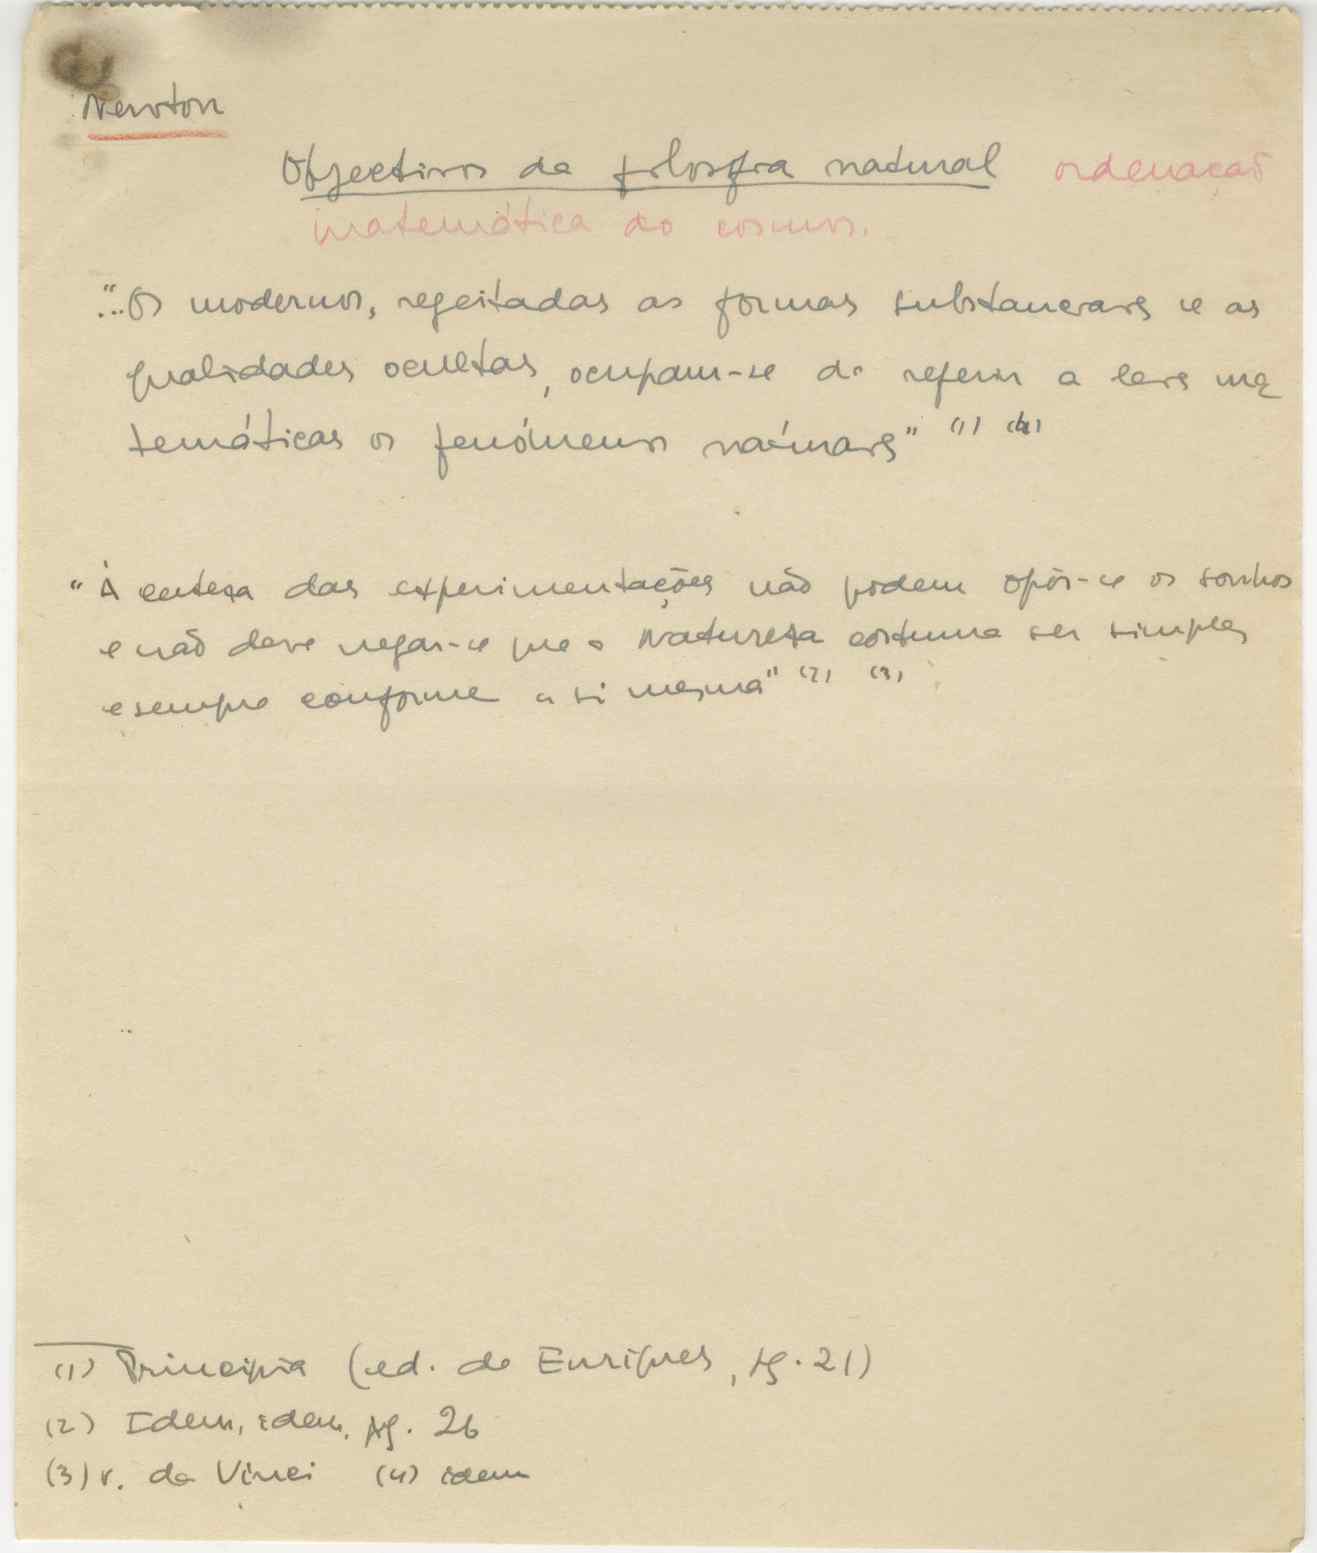 Newton
Objectivos da filosofia natural ordenação
matemática do cosmos.
"...Os modernos, regeitadas as formas substanciais e as
qualidades ocultas, ocupam-se de referir a leis ma
temáticas os fenómenos naturais" (1) (4)
"À certeza das experimentações não podem opôr-se os sonhos
e não deve negar-se que a Natureza costuma ser simples
e sempre conforme a si mesma" (2) (3)
(1) Principia (ed. de Enriques, pg. 21)
(2) Idem, idem, pg. 26
(3) v. da Vinci (4) idem